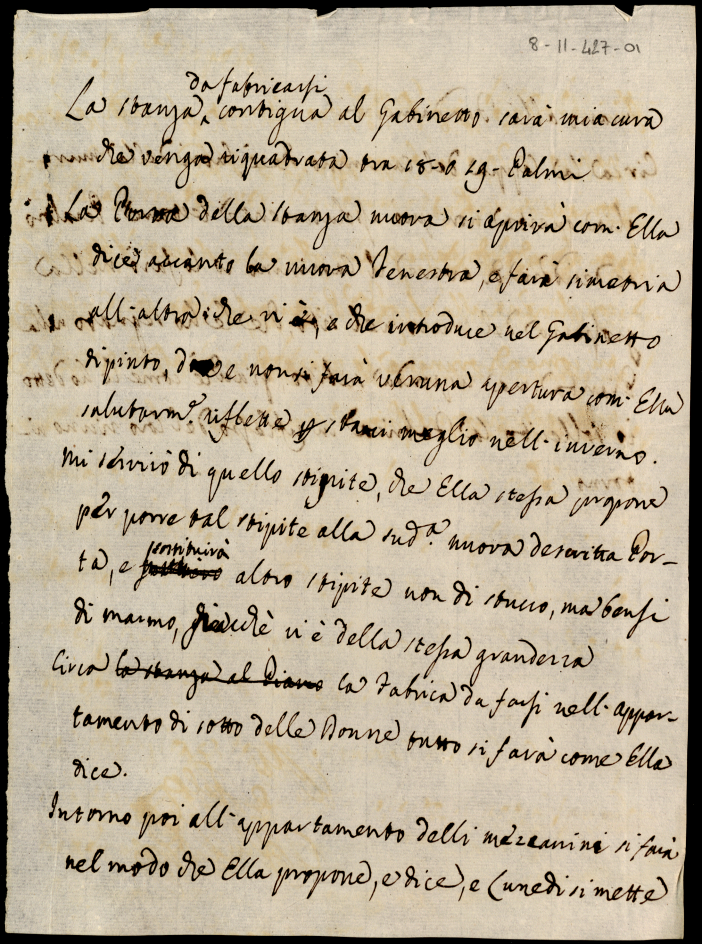 8-11-427-01
da fabricarsi
La stanza contigua al Gabinetto sarà mia cura
che venga riquadrata tra 18. o 19. Palmi
La Porta della stanza nuova si aprirà com. Ella
dice accanto la nuova Fenestra, e farà simetria
all. altra che vi è, e che introduce nel Gabinetto
dipinto, dove non si farà veruna apertura com. Ella
salutarm.e riflette p starci meglio nell. inverno.
Mi servirò di quello stipite, che Ella stessa propone
per porre tal stipite alla sud.a nuova descritta Por-
sostituirà
ta, e altro stipite non di stucco, ma bensi
di marmo, giacchè vi è della stessa grandezza
Circa la stanza al Piano la Fabrica da farsi nell. appar-
tamento di sotto delle Donne tutto si farà come Ella
dice.
Intorno poi all. appartamento delli mezzanini si farà
nel modo che Ella propone, e dice, e Lunedi si mette